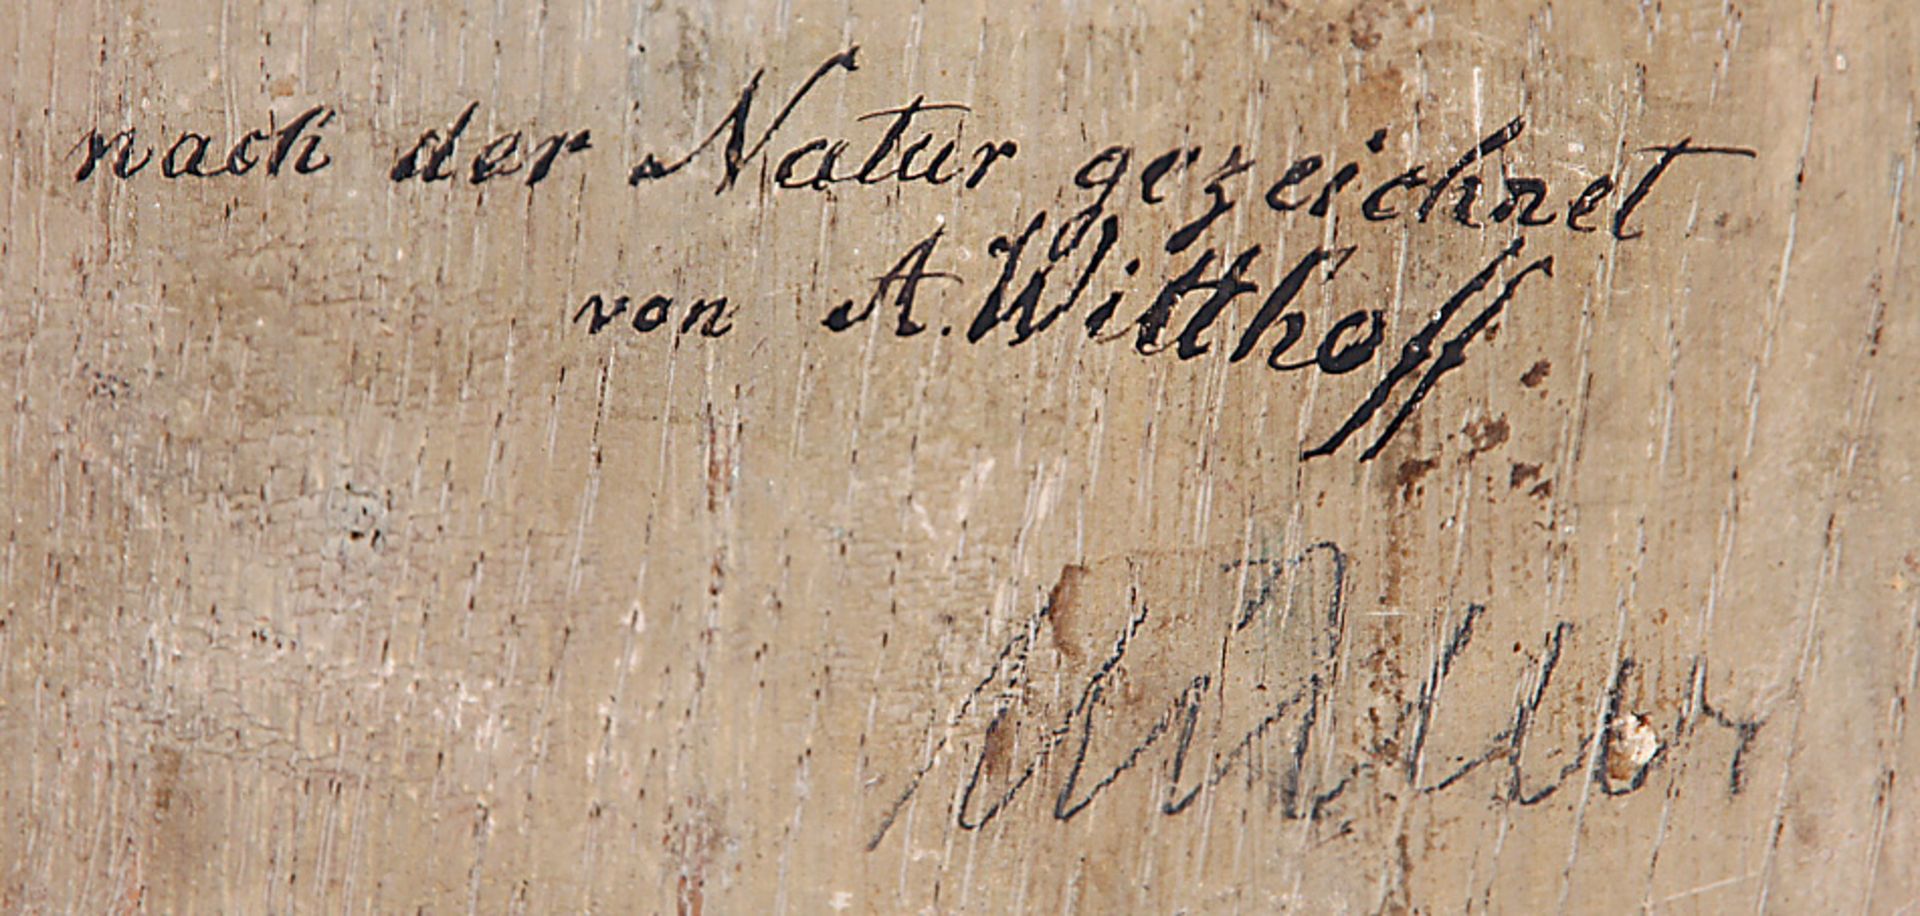 nach der Natur gezeichnet
von A. Witthoff.